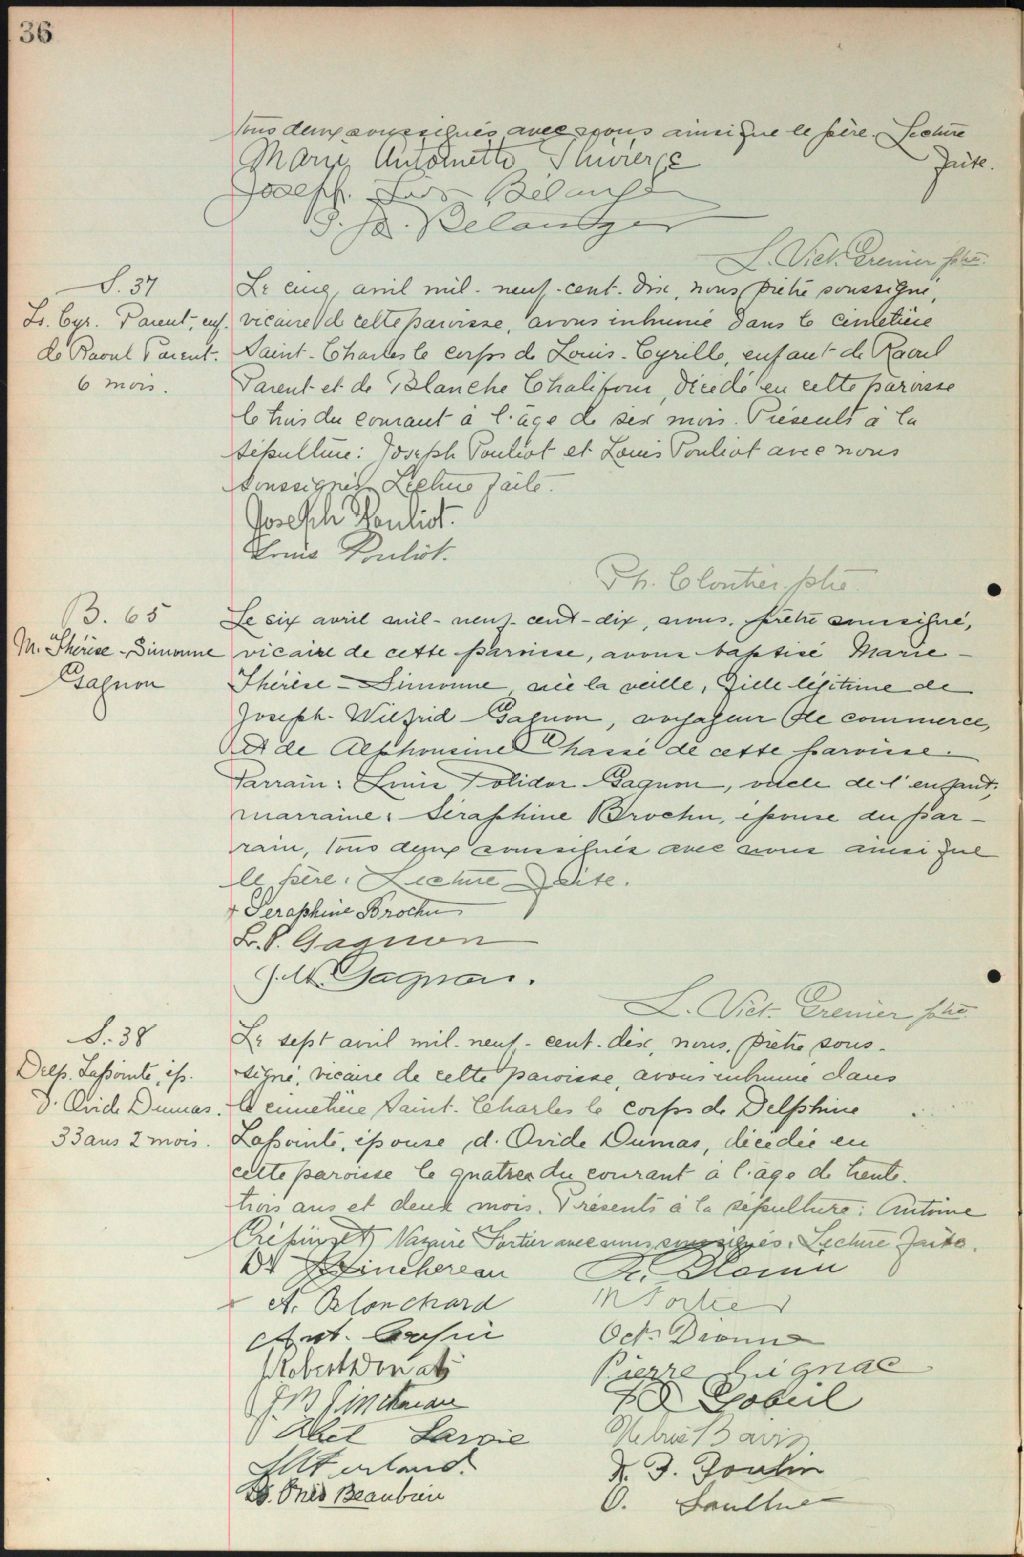 36
tous deux soussignés avec nous ainsi que le père. Lecture
faite.
Marie Antoinette Thivierge
Joseph Ls Bélanger
P. Jos. Belanger
L. Vict. Grenier ptre.
S. 37
Ls. Cyr. Parent, enf.
de Raoul Parent.
6 mois.
Le cinq avril mil-neuf-cent-dix, nous prêtre soussigné,
vicaire de cette paroisse, avons inhumé dans le cimetière
Saint-Charles le corps de Louis-Cyrille, enfant de Raoul
Parent et de Blanche Chalifour, décédé en cette paroisse
le trois du courant à l'âge de six mois. Présents à la
sépulture: Joseph Pouliot et Louis Pouliot avec nous
soussignés. Lecture faite.
Joseph Pouliot.
Louis Pouliot.
Ph. Cloutier ptre
B. 65
M. Thérèse-Simonne
Gagnon
Le six avril mil-neuf-cent-dix, nous, prêtre soussigné,
vicaire de cette paroisse, avons baptisé Marie-
Thérèse-Simonne, née la veille, fille légitime de
Joseph-Wilfrid Gagnon, voyageur de commerce,
et de Alphonsine Chassé de cette paroisse.
Parrain: Louis Polidor Gagnon, oncle de l'enfant;
marraine: Séraphine Brochu, épouse du par-
rain, tous deux soussignés avec nous ainsi que
le père. Lecture faite.
+ Seraphine Brochu
L. P. Gagnon
J. W. Gagnon.
L. Vict. Grenier ptre
S. 38
Delp. Lapointe, ép.
d'Ovide Dumas.
33 ans 2 mois.
Le sept avril mil-neuf-cent-dix, nous, prêtre sous-
signé, vicaire de cette paroisse, avons inhumé dans
le cimetière Saint-Charles le corps de Delphine
Lapointe, épouse d'Ovide Dumas, décédée en
cette paroisse le quatre du courant à l'âge de trente-
trois ans et deux mois. Présents à la sépulture: Antoine
Crépin et Nazaire Fortier avec nous soussignés. Lecture faite.
Dr
A. Blanchard
N Fortier
Ant. Crepin
Oct. Dionne
J Robert Donati
Pierre Gignac
Gobeil
Abel Savoie
Boivin
Beaubien
Poulin
O.